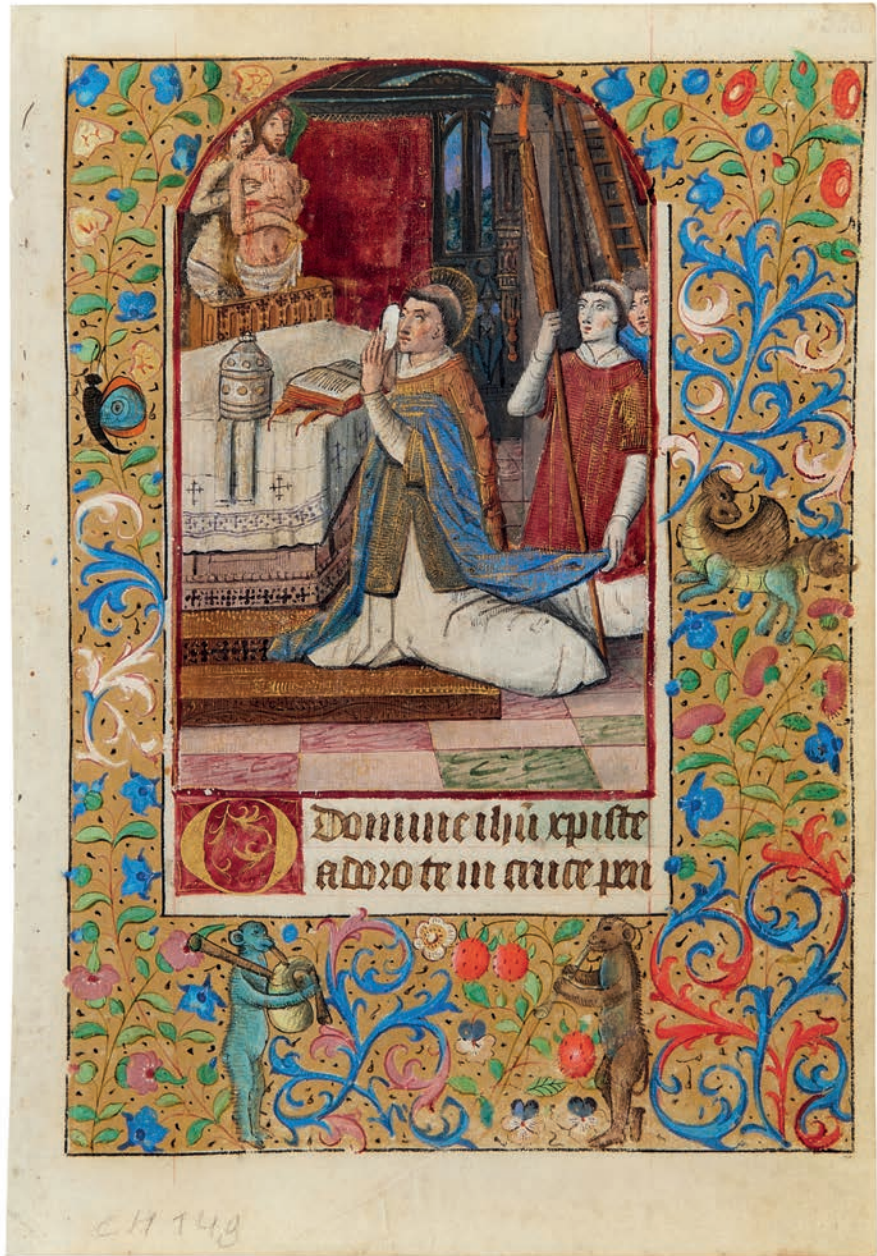 O Domine ihũ xpiste
adoro te in cruce pen
CH 149